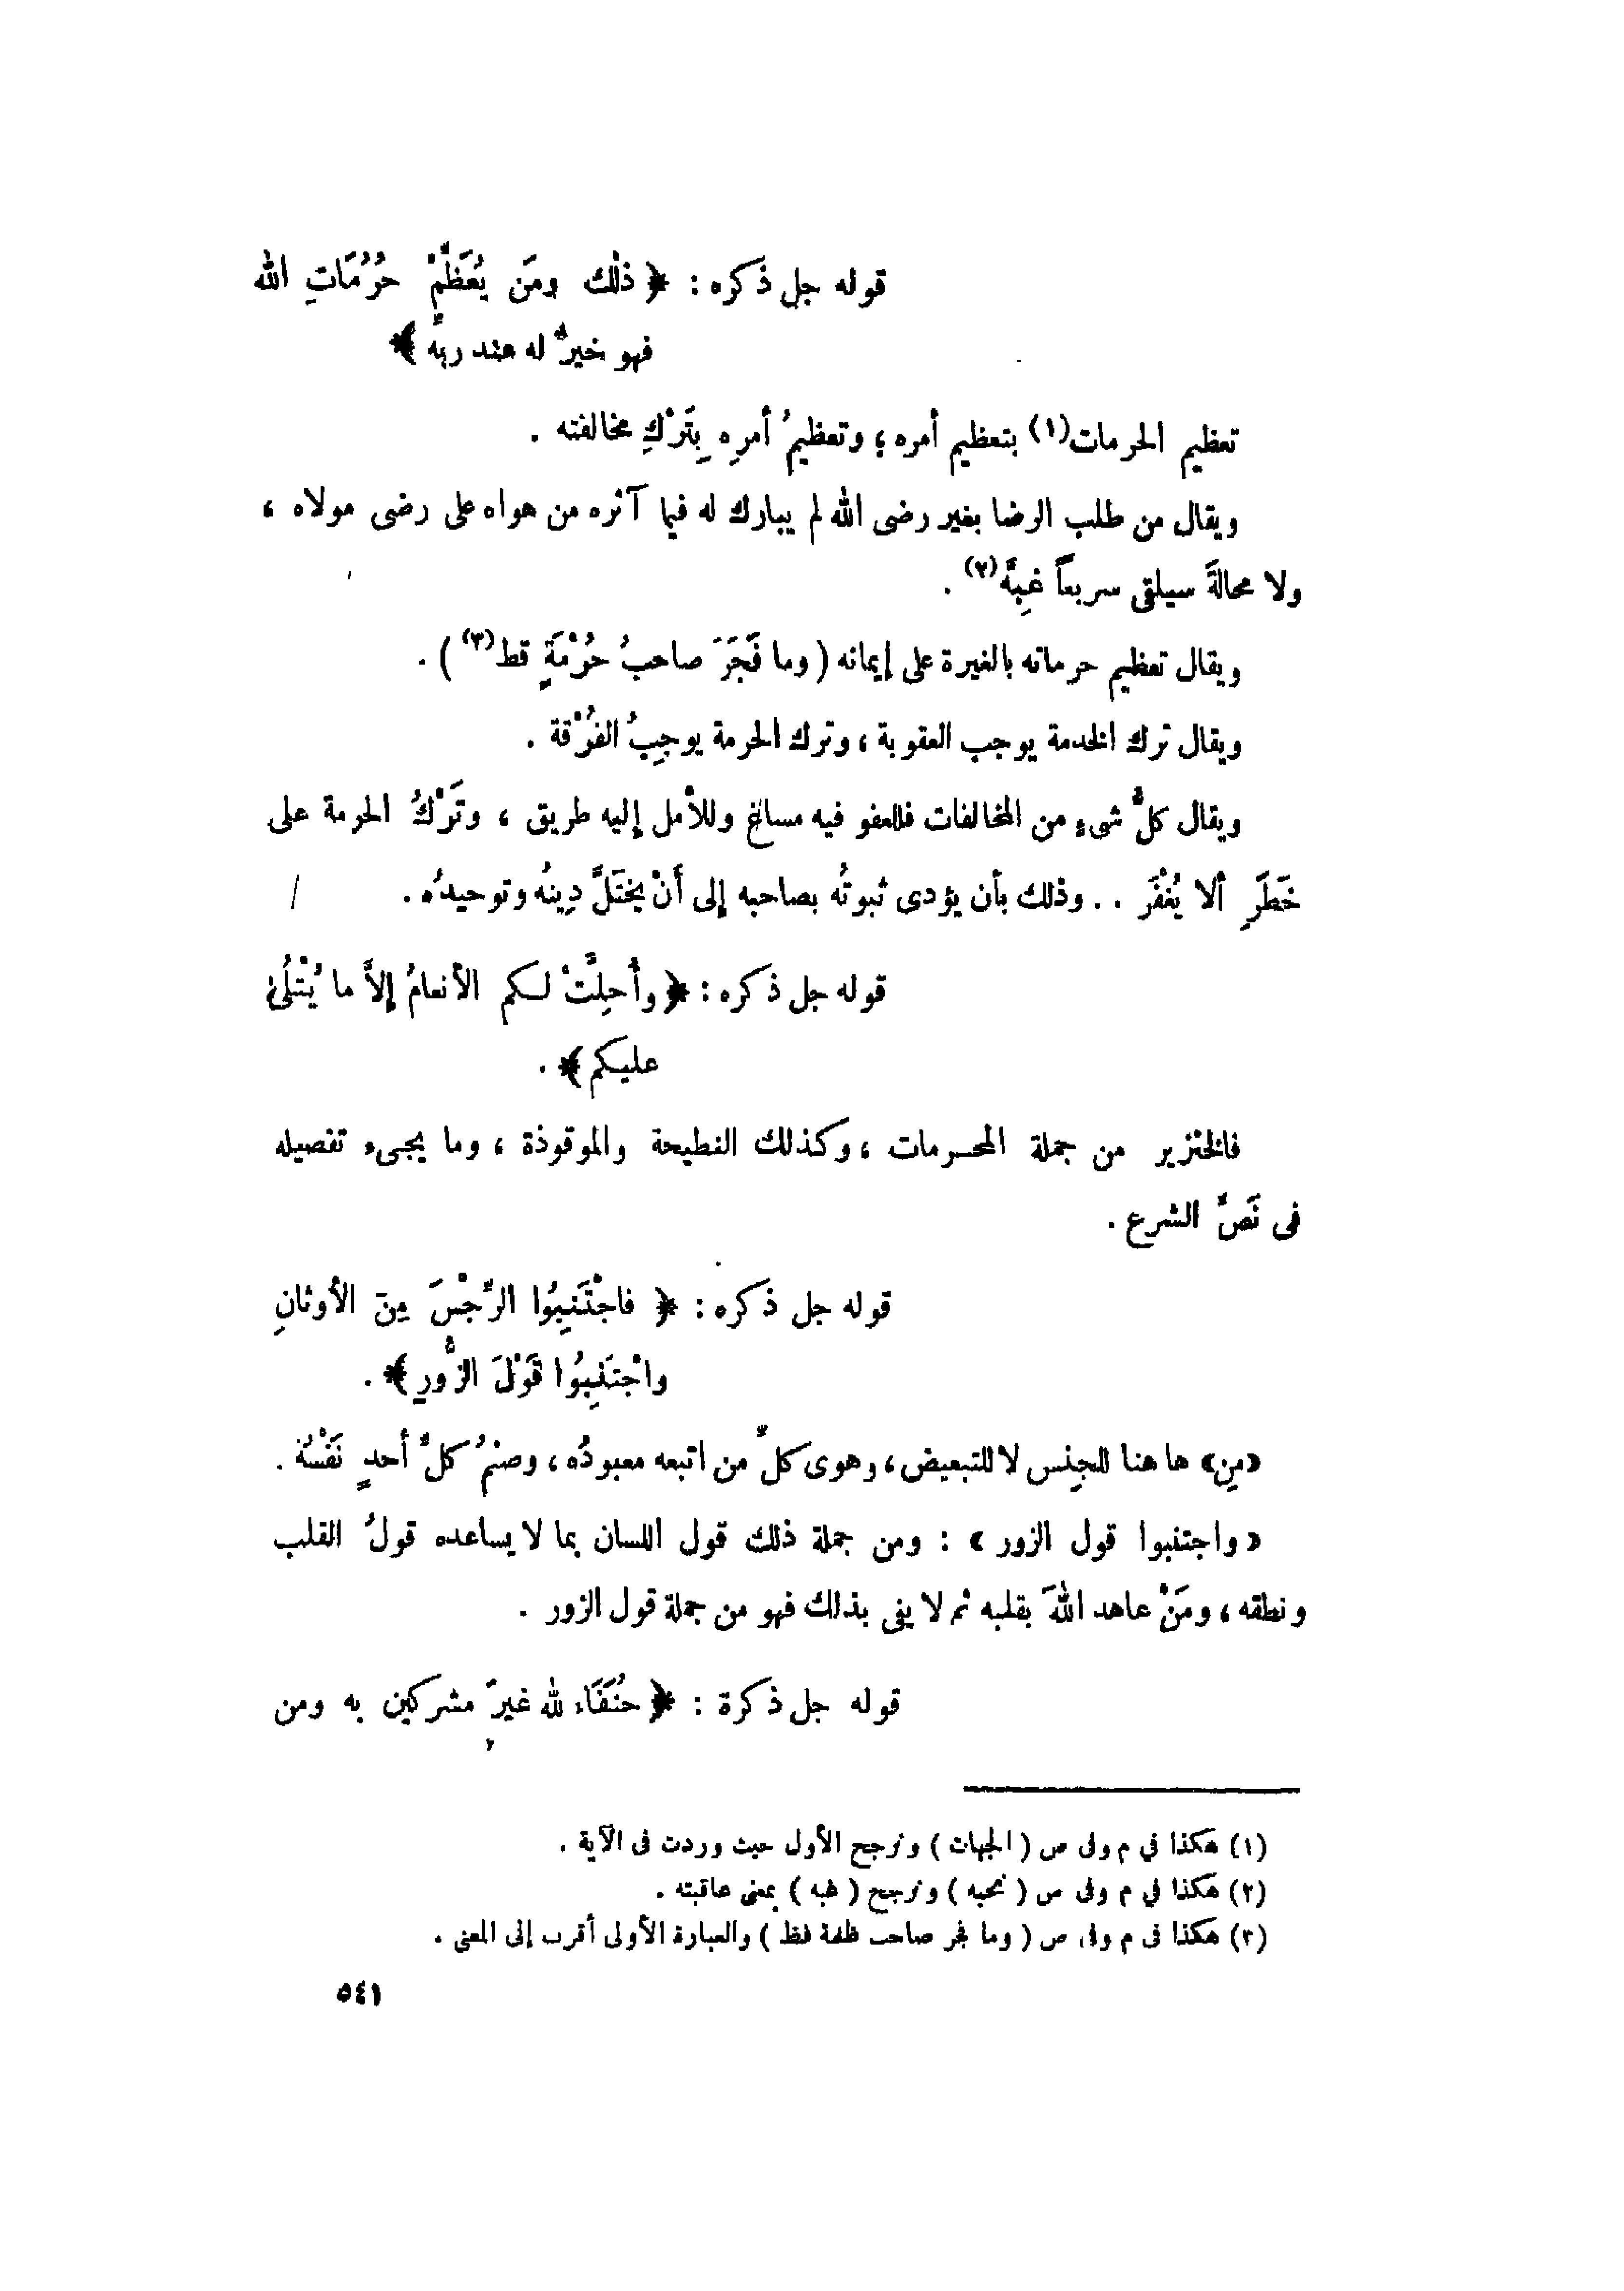 قوله جل ذكره : ﴿ ذلك ومَن يُعَظِّمْ حُرُمَاتِ الله
فهو خيرٌ له عند ربِّه ﴾
تعظيم الحرمات(١) بتعظيم أمره ؛ وتعظيمُ أمرِه بِتَرْكِ مخالفته .
ويقال من طلب الرضا بغير رضى الله لم يبارك له فيما آثره من هواه على رضى مولاه ،
ولا محالةَ سيلقى سريعاً غِبَّه(٢) .
ويقال تعظيم حرماته بالغيرة على إيمانه ( وما فَجَرَ صاحبُ حُرْمَةٍ قط(٣) ) .
ويقال ترك الخدمة يوجب العقوبة ، وترك الحرمة يوجِبُ الفُرْقة .
ويقال كلُّ شىءٍ من المخالفات فللعفو فيه مساغ وللأمل إليه طريق ، وتَرْكُ الحرمة على
خَطَرِ ألا يُغْفَر . . وذلك بأن يؤدى ثبوتُه بصاحبه إلى أَنْ يختَلَّ دِينُه وتوحيدُه .
قوله جل ذكره : ﴿ وأُحِلَّتْ لكم الأنعامُ إلاَّ ما يُتْلَىٰ
عليكم ﴾ .
فالخنزير من جملة المحرمات ، وكذلك النطيحة والموقوذة ، وما يجىء تفصيله
فى نَصِّ الشرع .
قوله جل ذكره : ﴿ فاجْتَنِبُوا الرِّجْسَ مِنَ الأوثانِ
واجْتَنِبُوا قَوْلَ الزُّورِ ﴾ .
«مِن» ها هنا للجِنس لا للتبعيض ، وهوى كلِّ من اتبعه معبودُه ، وصنمُ كلِّ أحدٍ نَفْسُه .
« واجتنبوا قول الزور » : ومن جملة ذلك قول اللسان بما لا يساعده قولُ القلب
ونطقه ، ومَنْ عاهد اللهَ بقلبه ثم لا يفى بذلك فهو من جملة قول الزور .
قوله جل ذكرة : ﴿ حُنَفَاء لله غيرَ مشركين به ومن
(١) هكذا في م وفى ص ( الجهات ) ونرجح الأول حيث وردت فى الآية .
(٢) هكذا في م وفى ص ( نحيه ) ونرجح ( غبه ) بمعنى عاقبته .
(٣) هكذا فى م وفى ص ( وما فجر صاحب فظ ) والعبارة الأولى أقرب إلى المعنى .
٥٤١